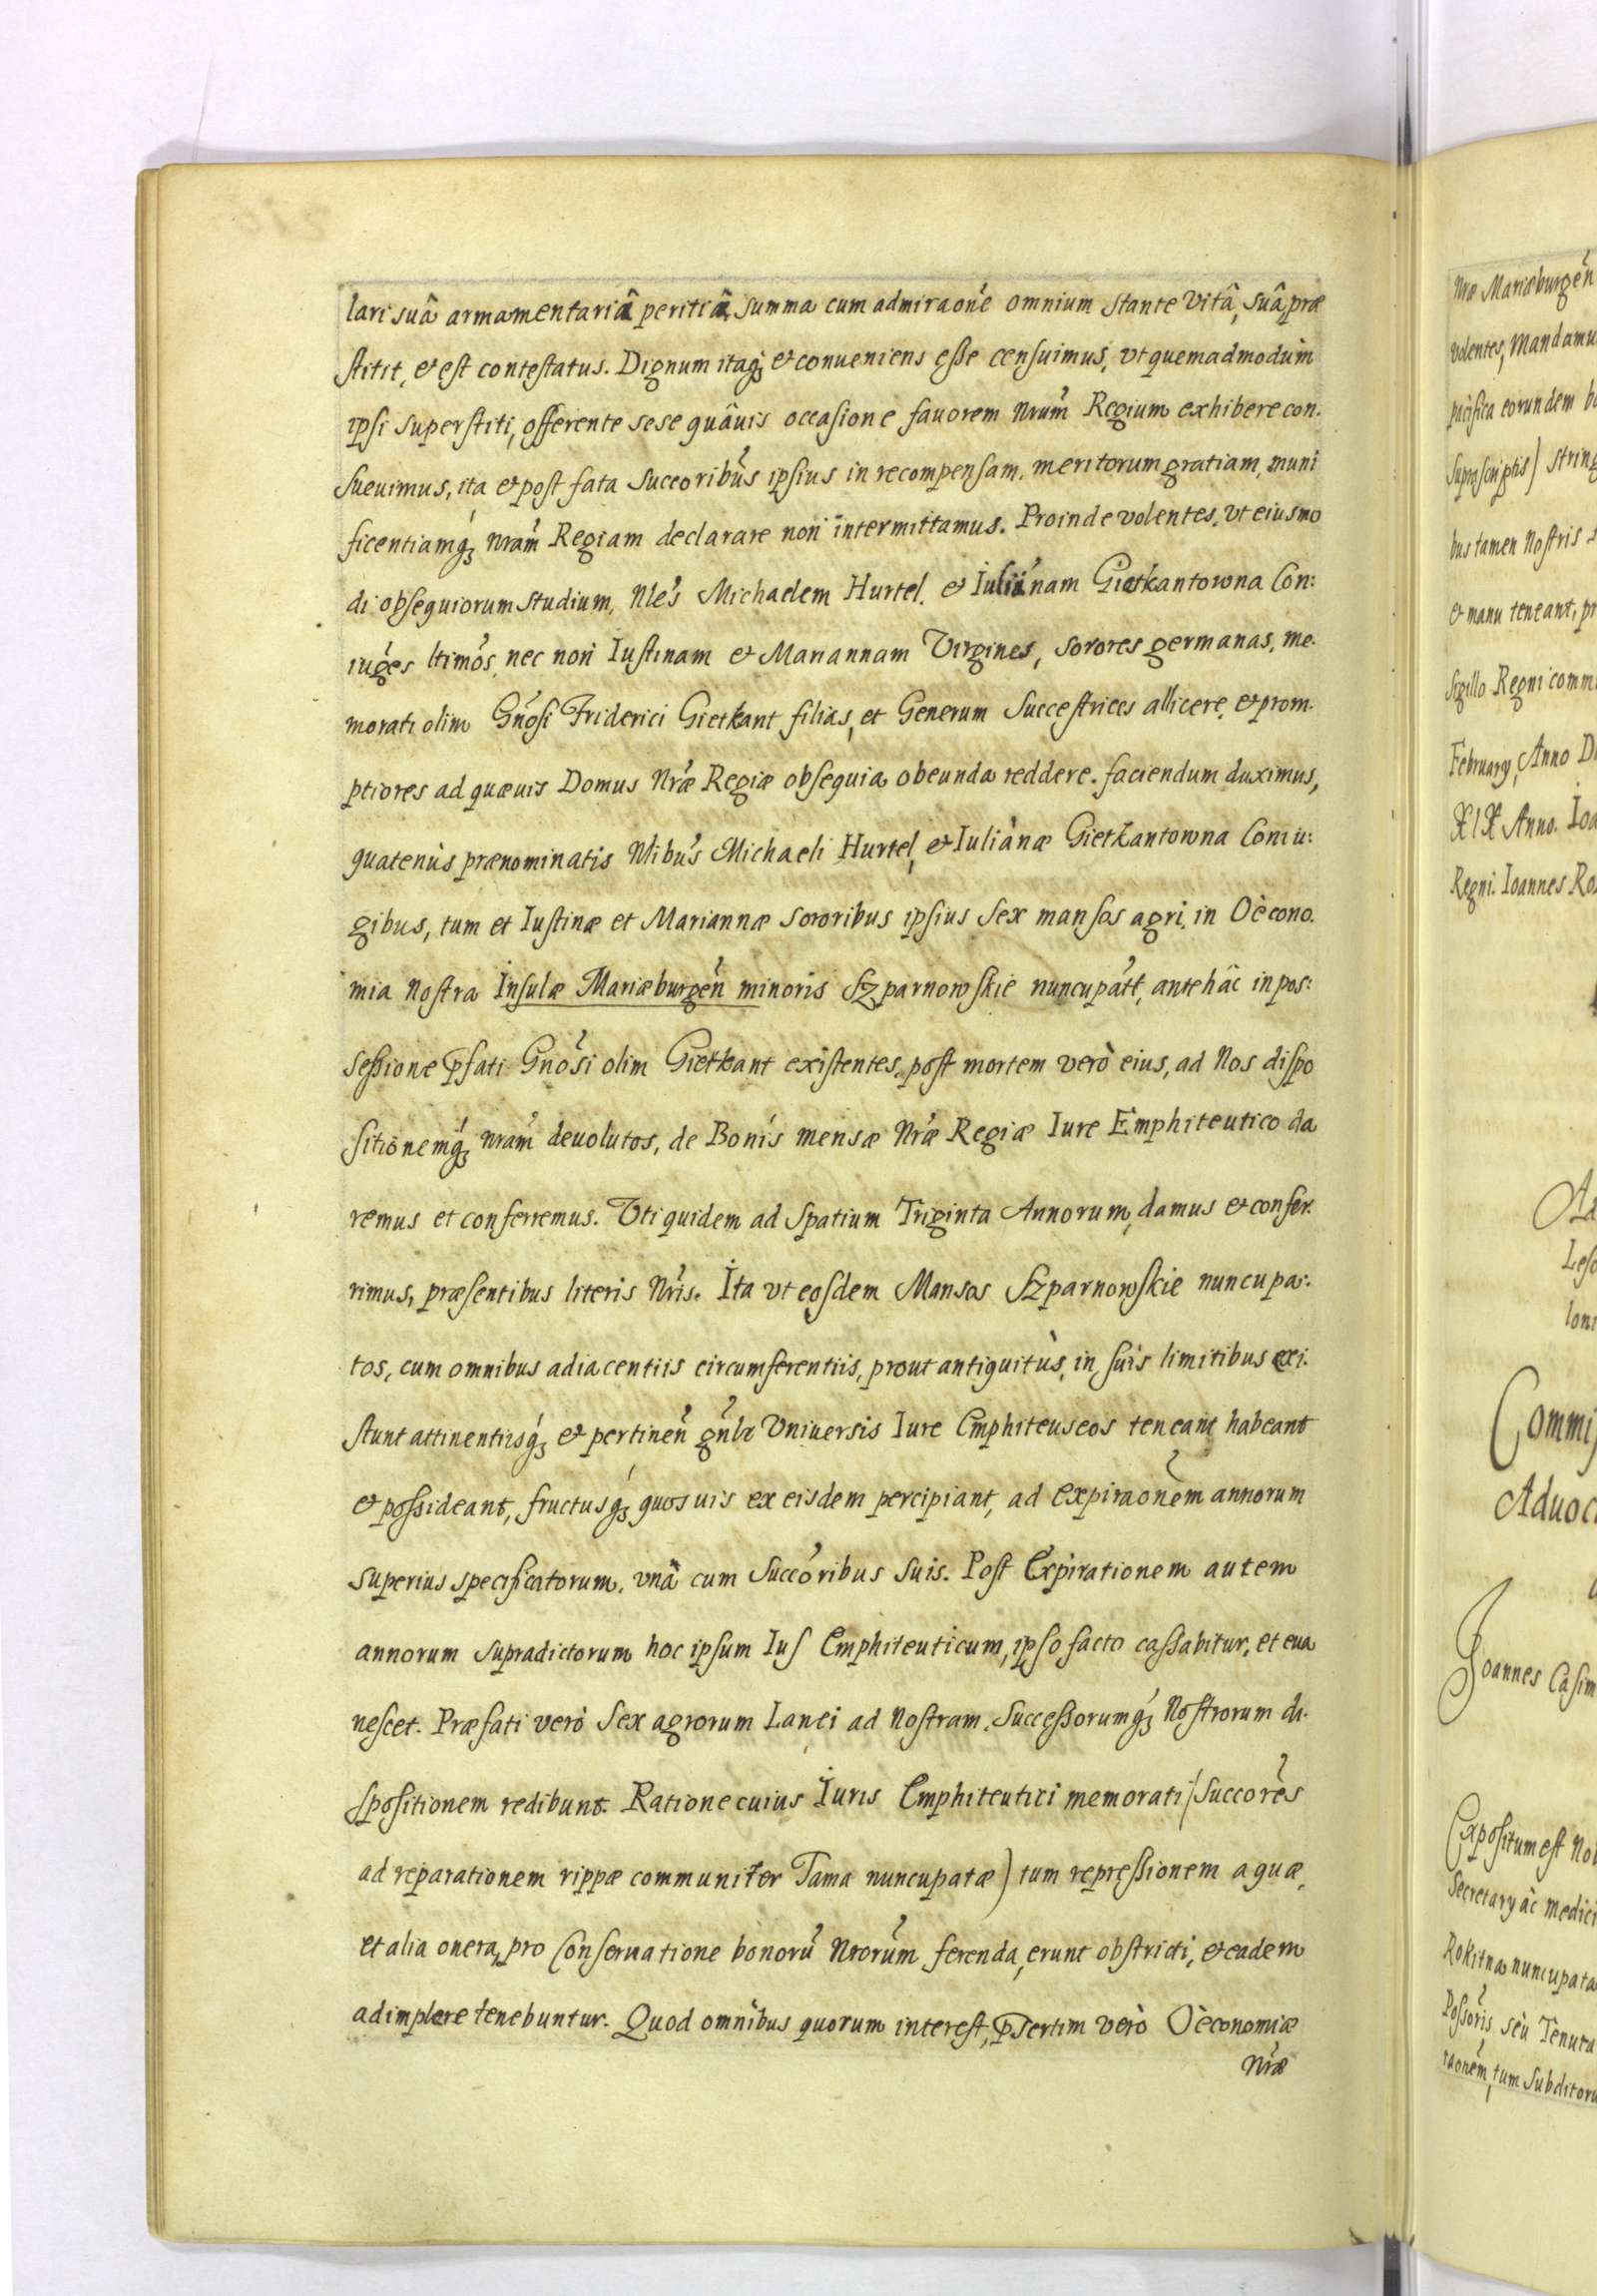 lari suâ armamentariâ peritiâ, summa cum admiraone omnium stante vitâ, suâ, præ
stitit, et est contestatus. Dignum itaq; et conueniens esse censuimus, vt quemadmodùm
ipsi superstiti, offerente sese quâuis occasione fauorem Nrum Regium exhibere con-
sueuimus, ita et post fata succoribus ipsius in recompensam, meritorum gratiam, muni
ficentiamq; Nram Regiam declarare non intermittamus. Proinde volentes, vt eiusmo
di obsequiorum studium, Nles Michaelem Hurtel, et Iuliánam Gietkantowna Con:
iuges ltimos, nec non Iustinam et Mariannam Virgines, sorores germanas, me-
morati olim Gnosi Friderici Gietkant filias, et Generum Succestrices allicere, et prom-
ptiores ad quæuis Domus Nræ Regiæ obsequia obeunda reddere. faciendum duximus,
quatenùs prænominatis Nlibus Michaeli Hurtel, et Iuliànæ Gietkantowna Coniu:
gibus, tum et Iustinæ et Mariannæ sororibus ipsius sex mansos agri, in Oècono-
mia Nostra Insulæ Mariæburgen minoris Szparnowskie nuncupatt, antehâc in pos:
sessione pfati Gnosi olim Gietkant existentes, post mortem verò eius, ad Nos dispo
sitionemq; Nram deuolutos, de Bonis mensæ Nræ Regiæ Iure Emphiteutico da
remus et conferremus. Vti quidem ad spatium Triginta Annorum, damus et confer-
rimus, præsentibus literis Nris. Ita vt eosdem Mansos Szparnowskie nuncupa-
tos, cum omnibus adiacentiis circumferentiis, prout antiquitùs, in suis limitibus exi-
stunt attinentiisq; et pertinen gnlr Vniuersis Iure Emphiteuseos teneant habeant
et possideant, fructusq; quosuis ex eisdem percipiant, ad expiraonem annorum
superius specificatorum, vnâ cum Succoribus suis. Post Expirationem autem
annorum supradictorum hoc ipsum Ius Emphiteuticum, ipso facto cassabitur, et eua
nescet. Præfati verò Sex agrorum Lanei ad Nostram, Successorumq; Nostrorum di-
spositionem redibunt. Ratione cuius Iuris Emphiteutici memorati (Succores
ad reparationem rippæ communiter Tama nuncupatæ) tum repressionem aquæ,
et alia onera, pro Conseruatione bonoru Nrorum ferenda, erunt obstricti, et eadem
adimplere tenebuntur. Quod omnibus quorum interest, psertim verò Oèconomiæ
Nræ
Nræ Mariæburgen
volentes, Mandamu
pacifica eorundem bo
suprascriptis) string
bus tamen Nostris
et manu teneant, pr
Sigillo Regni comm
February, Anno D
XIX Anno. Ioa
Regni. Ioannes Ro
Ad
Lesc
loni
Commis
Aduoc
Ioannes Casim
Expositum est No
Secretary âc medici
Rokitna nuncupata
Possoris seù Tenuta
raonem, tum Subditoru